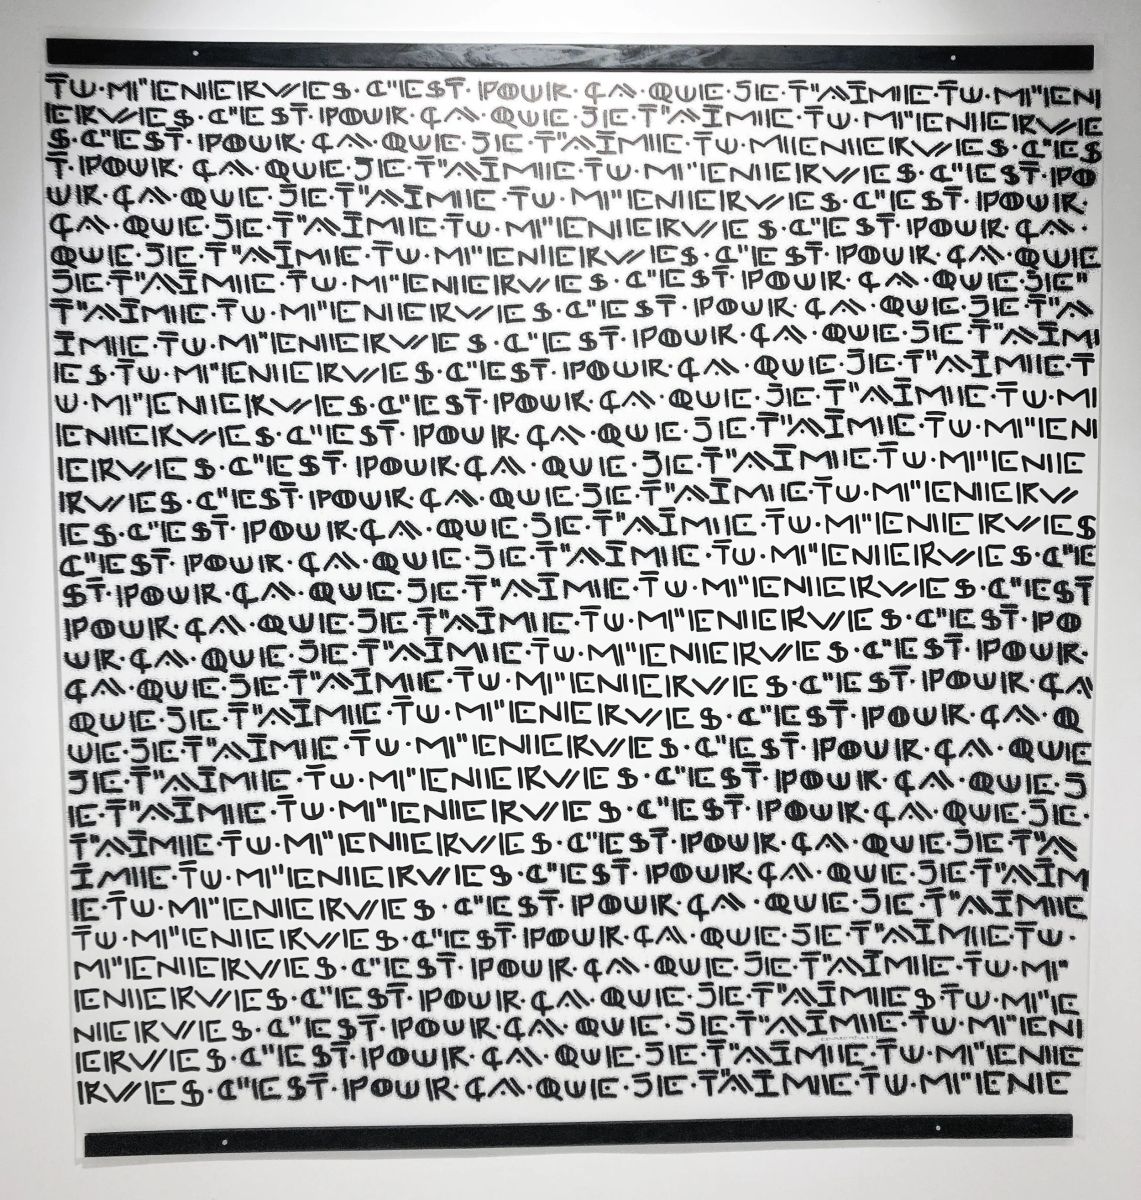 TU·M'ENERVES·C'EST·POUR·ÇA·QUE·JE·T'AIME·TU·M'EN
ERVES·C'EST·POUR·ÇA·QUE·JE·T'AIME·TU·M'ENERVE
S·C'EST·POUR·ÇA·QUE·JE·T'AIME·TU·MENERVES·C'ES
T·POUR·ÇA·QUE·JE·T'AIME·TU·M'ENERVES·C'EST·PO
UR·ÇA·QUE·JE·T'AIME·TU·M'ENERVES·C'EST·POUR·
ÇA·QUE·JE·T'AIME·TU·M'ENERVES·C'EST·POUR·ÇA·
QUE·JE·T'AIME·TU·M'ENERVES·C'EST·POUR·ÇA·QUE
JE·T'AIME·TU·M'ENERVES·C'EST·POUR·ÇA·QUE·JE'
T'AIME·TU·M'ENERVES·C'EST·POUR·ÇA·QUE·JE·T'A
IME·TU·M'ENERVES·C'EST·POUR·ÇA·QUE·JE·T'AIM
ES·TU·M'ENERVES·C'EST·POUR·ÇA·QUE·JE·T'AIME·T
U·M'ENERVES·C'EST·POUR·ÇA·QUE·JE·T'AIME·TU·M
ENERVES·C'EST·POUR·ÇA·QUE·JE·T'AIME·TU·M'EN
ERVES·C'EST·POUR·ÇA·QUE·JE·T'AIME·TU·M'ENE
RVES·C'EST·POUR·ÇA·QUE·JE·T'AIME·TU·M'ENERV
ES·C'EST·POUR·ÇA·QUE·JE·T'AIME·TU·M'ENERVES
C'EST·POUR·ÇA·QUE·JE·T'AIME·TU·M'ENERVES·C'E
ST·POUR·ÇA·QUE·JE·T'AIME·TU·M'ENERVES·C'EST
POUR·ÇA·QUE·JE·T'AIME·TU·M'ENERVES·C'EST·PO
UR·ÇA·QUE·JE·T'AIME·TU·M'ENERVES·C'EST·POUR·
ÇA·QUE·JE·T'AIME·TU·M'ENERVES·C'EST·POUR·ÇA
QUE·JE·T'AIME·TU·M'ENERVES·C'EST·POUR·ÇA·Q
UE·JE·T'AIME·TU·M'ENERVES·C'EST·POUR·ÇA·QUE
JE·T'AIME·TU·M'ENERVES·C'EST·POUR·ÇA·QUE·J
E·T'AIME·TU·M'ENERVES·C'EST·POUR·ÇA·QUE·JE·
T'AIME·TU·M'ENERVES·C'EST·POUR·ÇA·QUE·JE·T'A
IME·TU·M'ENERVES·C'EST·POUR·ÇA·QUE·JE·T'AIM
E·TU·M'ENERVES·C'EST·POUR·ÇA·QUE·JE·T'AIME
TU·M'ENERVES·C'EST·POUR·ÇA·QUE·JE·T'AIME·TU·
M'ENERVES·C'EST·POUR·ÇA·QUE·JE·T'AIME·TU·M'
ENERVES·C'EST·POUR·ÇA·QUE·JE·T'AIMES·TU·M'E
NERVES·C'EST·POUR·ÇA·QUE·JE·T'AIME·TU·M'EN
ERVES·C'EST·POUR·ÇA·QUE·JE·T'AIME·TU·M'ENE
RVES·C'EST·POUR·ÇA·QUE·JE·T'AIME·TU·M'ENE